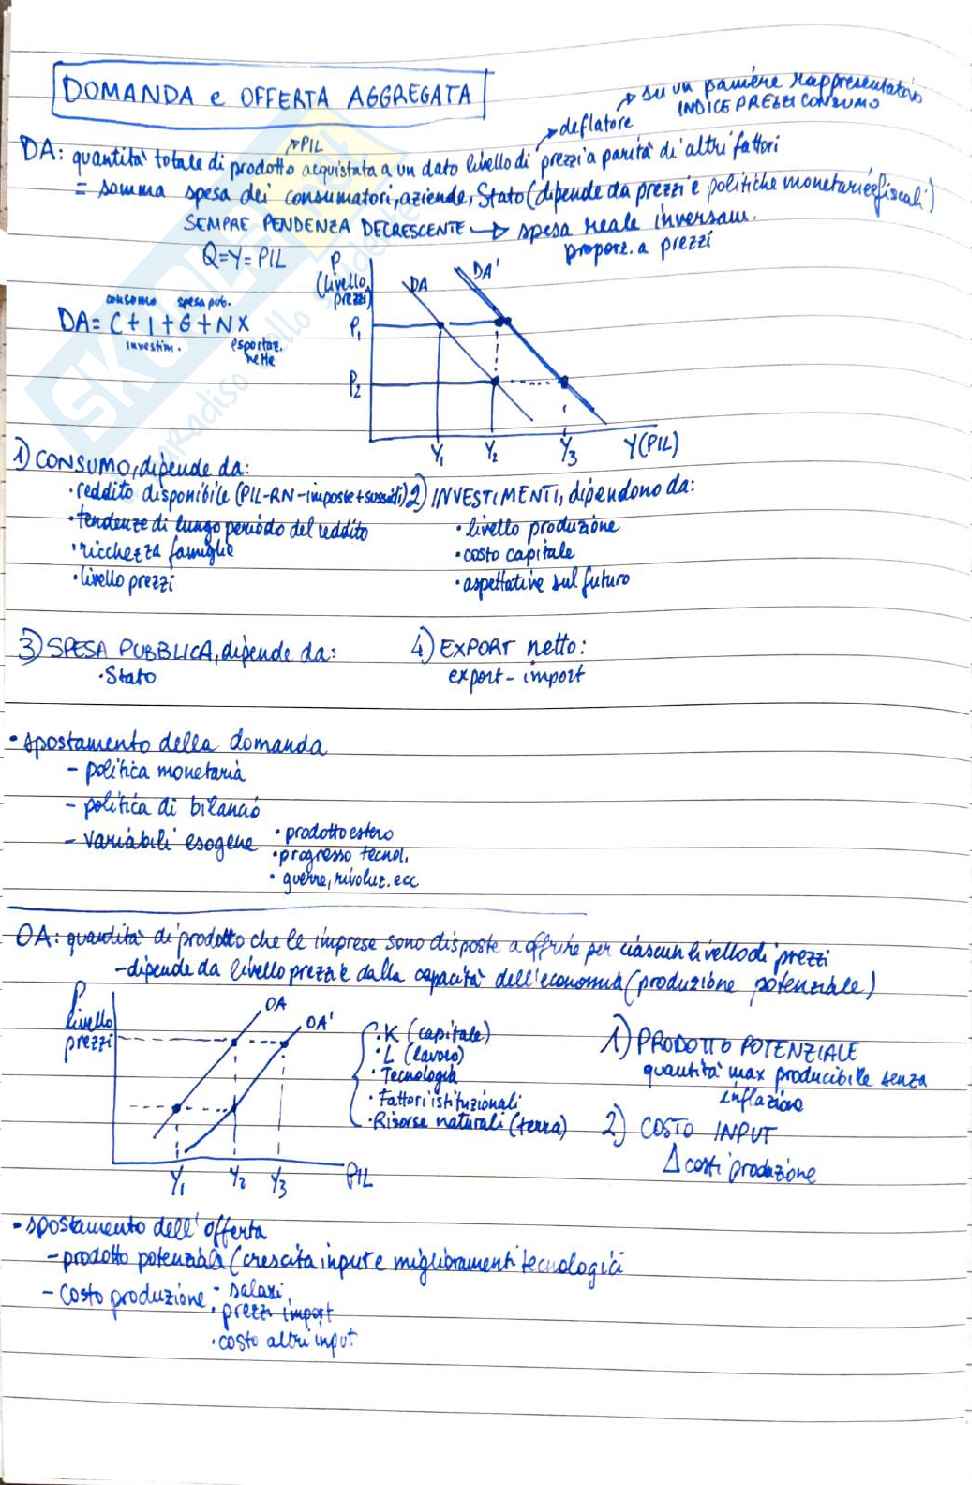 DOMANDA e OFFERTA AGGREGATA
su un paniere rappresentativo
INDICE PREZZI CONSUMO
deflatore
PIL
DA: quantità totale di prodotto acquistata a un dato livello di prezzi a parità di altri fattori
= somma spesa dei consumatori, aziende, Stato (dipende da prezzi e politiche monetarie e fiscali)
SEMPRE PENDENZA DECRESCENTE → spesa reale inversam.
proporz. a prezzi
Q=Y=PIL
P
(livello
prezzi)
DA
DA'
P1
P2
Y1
Y2
Y3
Y(PIL)
consumo spesa pub.
DA = C + I + G + NX
investim. esportaz.
nette
1) CONSUMO, dipende da:
· reddito disponibile (PIL-RN-imposte+sussidi)
· tendenze di lungo periodo del reddito
· ricchezza famiglie
· livello prezzi
2) INVESTIMENTI, dipendono da:
· livello produzione
· costo capitale
· aspettative sul futuro
3) SPESA PUBBLICA, dipende da:
· Stato
4) EXPORT netto:
export - import
· spostamento della domanda
- politica monetaria
- politica di bilancio
- variabili esogene
· prodotto estero
· progresso tecnol.
· guerre, rivoluz. ecc
OA: quantità di prodotto che le imprese sono disposte a offrire per ciascun livello di prezzi
- dipende da livello prezzi e dalla capacità dell'economia (produzione potenziale)
P
livello
prezzi
OA
OA'
Y1
Y2
Y3
PIL
· K (capitale)
· L (lavoro)
· Tecnologia
· Fattori istituzionali
· Risorse naturali (terra)
1) PRODOTTO POTENZIALE
quantità max producibile senza
inflazione
2) COSTO INPUT
Δ costi produzione
- spostamento dell'offerta
- prodotto potenziale (crescita input e miglioramenti tecnologici
- costo produzione
· salari,
· prezzi import
· costo altri input
SKUOLA.net